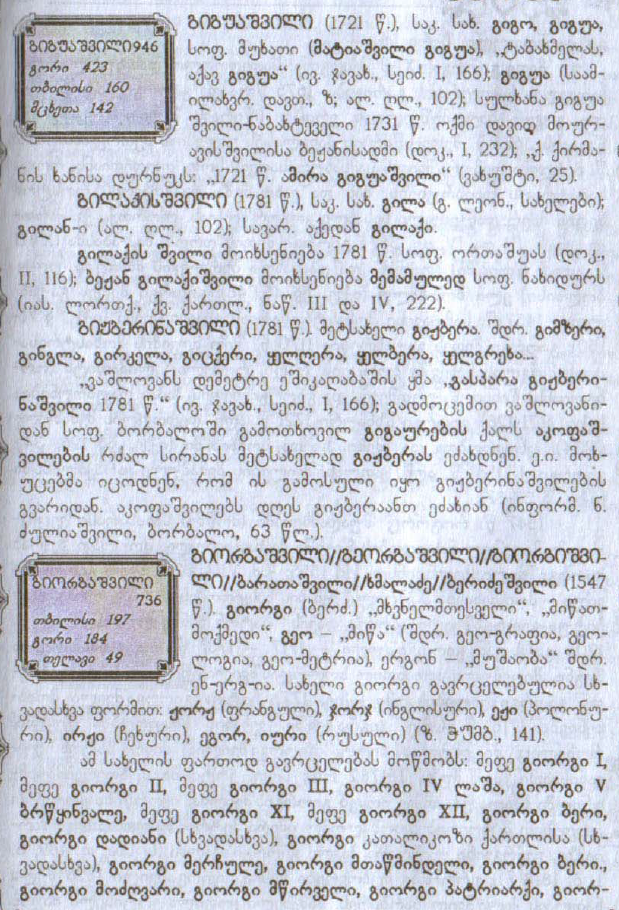 გიგუაშვილი (1721 წ.), საკ. სახ. გიგო, გიგუა,
გიგუაშვილი946
გორი 423
თბილისი 160
მცხეთა 142
სოფ. მუხათი (მატიაშვილი გიგუა), „ტაბახმელას,
აქავ გიგუა“ (ივ. ჯავახ., სეიძ. I, 166); გიგუა (საამ-
ილახვრ. დავთ., ზ; ალ. ღლ., 102); სულხანა გიგუა
შვილი-ნაბახტეველი 1731 წ. ოქმი დავიდ მოურ-
ავისშვილისა ბეჟანისადმი (დოკ., I, 232); „ქ. ქირმა-
ნის ხანისა დურნუკს: „1721 წ. ამირა გიგუაშვილი“ (ვახუშტი, 25).
გილაქისშვილი (1781 წ.), საკ. სახ. გილა (გ. ლეონ., სახელები);
გილან-ი (ალ. ღლ., 102); სავარ. აქედან გილაქი.
გილაქის შვილი მოიხსენიება 1781 წ. სოფ. ორთაშუას (დოკ.,
II, 116); ბეჟან გილაქიშვილი მოიხსენიება მემამულედ სოფ. ნახიდურს
(იას. ლორთქ., ქვ. ქართლ., ნაწ. III და IV, 222).
გიჟბერინაშვილი (1781 წ.). მეტსახელი გიჟბერა. შდრ. გიმზერი,
გინგლა, გირკელა, გიცქერი, ყელღერა, ყელბერა, ყელგრეხი...
„ვაშლოვანს დემეტრე ეშიკაღაბაშის ყმა „გასპარა გიჟბერი-
ნაშვილი 1781 წ.“ (ივ. ჯავახ., სეიძ., I, 166); გადმოცემით ვაშლოვანი-
დან სოფ. ბორბალოში გამოთხოვილ გიგაურების ქალს აკოფაშ-
ვილების რძალ სირანას მეტსახელად გიჟბერას ეძახდნენ. ე.ი. მოხ-
უცებმა იცოდნენ, რომ ის გამოსული იყო გიჟბერინაშვილების
გვარიდან. აკოფაშვილებს დღეს გიჟბერაანთ ეძახიან (ინფორმ. ნ.
ძულიაშვილი, ბორბალო, 63 წლ.).
გიორგაშვილი//გეორგაშვილი//გიორგიშვი-
გიორგაშვილი
736
თბილისი 197
გორი 184
თელავი 49
ლი//ბარათაშვილი//ხმალაძე//ბერიძეშვილი (1547
წ.). გიორგი (ბერძ.) „მხვნელმთესველი“, „მიწათ-
მოქმედი“, გეო – „მიწა“ (შდრ. გეო-გრაფია, გეო-
ლოგია, გეო-მეტრია), ერგონ – „მუშაობა“ შდრ.
ენ-ერგ-ია. სახელი გიორგი გავრცელებულია სხ-
ვადასხვა ფორმით: ჟორჟ (ფრანგული), ჯორჯ (ინგლისური), ეჟი (პოლონუ-
რი), ირჟი (ჩეხური), ეგორ, იური (რუსული) (ზ. ჭუმბ., 141).
ამ სახელის ფართოდ გავრცელებას მოწმობს: მეფე გიორგი I,
მეფე გიორგი II, მეფე გიორგი III, გიორგი IV ლაშა, გიორგი V
ბრწყინვალე, მეფე გიორგი XI, მეფე გიორგი XII, გიორგი ბერი,
გიორგი დადიანი (სხვადასხვა), გიორგი კათალიკოზი ქართლისა (სხ-
ვადასხვა), გიორგი მერჩულე, გიორგი მთაწმინდელი, გიორგი ბერი.,
გიორგი მოძღვარი, გიორგი მწირველი, გიორგი პატრიარქი, გიორ-